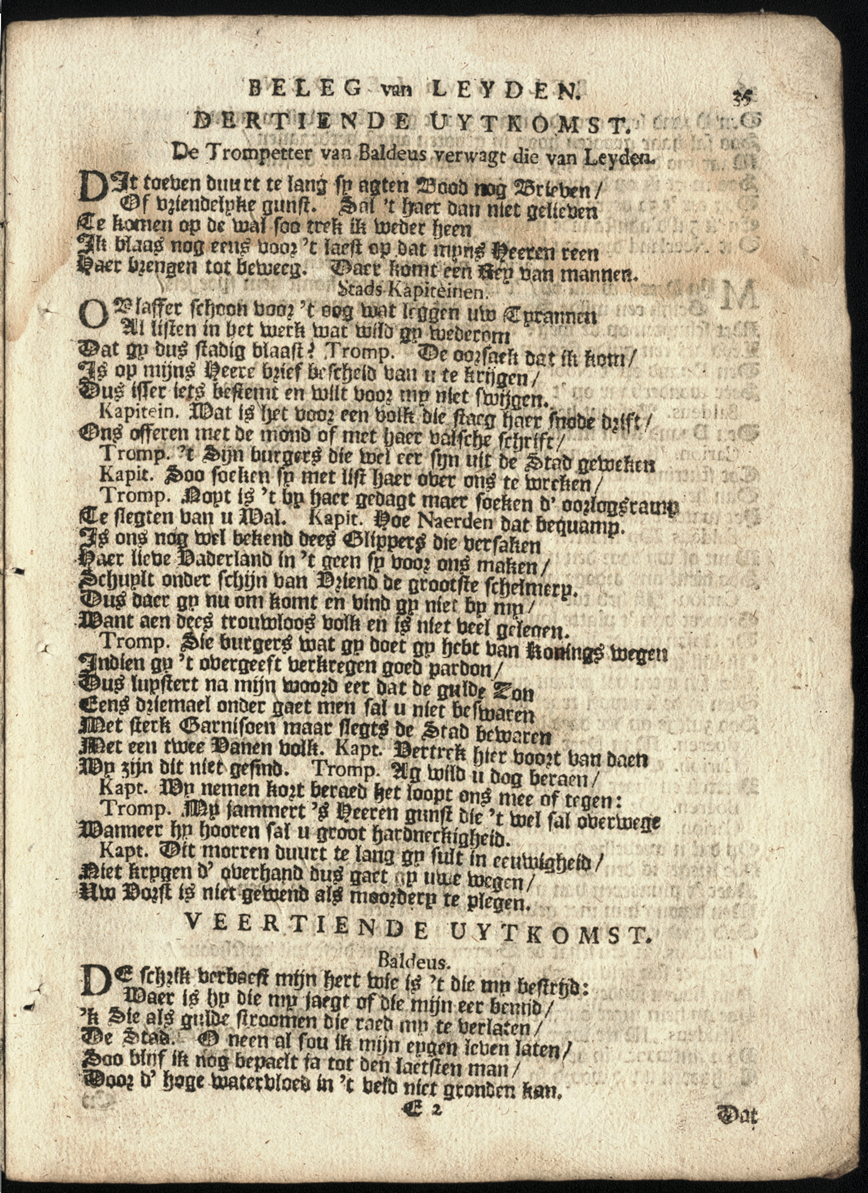 BELEG van LEYDEN. 35
DERTIENDE UYTKOMST.
De Trompetter van Baldeus verwagt die van Leyden.
DIt toeven duurt te lang sy agten Bood nog Brieven/
Of vriendelyke gunst. Sal 't haer dan niet gelieven
Te komen op de wal soo trek ik weder heen
Ik blaas nog eens voor 't laest op dat myns Heeren reen
Haer brengen tot beweeg. Daer komt een Rey van mannen.
Stads-Kapiteinen.
O Blasser schoon voor 't oog wat leggen uw Tyrannen
Al listen in het werk wat wild gy wederom
Dat gy dus stadig blaast? Tromp. De oorsaek dat ik kom/
Is op mijns Heere brief bescheid van u te krijgen/
Dus isser iets bestemt en wilt voor my niet swijgen.
Kapitein. Wat is het voor een volk die staeg haer snode drift/
Ons offeren met de mond of met haer valsche schrift/
Tromp. 't Sijn burgers die wel eer syn uit de Stad geweken
Kapit. Soo soeken sy met list haer over ons te wreken/
Tromp. Noyt is 't by haer gedagt maer soeken d' oorlogsramp
Te slegten van u Wal. Kapit. Hoe Naerden dat bequamp.
Is ons nog wel bekend dees Glippers die versaken
Haer lieve Vaderland in 't geen sy voor ons maken/
Schuylt onder schijn van Vriend de grootste schelmery.
Dus daer gy nu om komt en vind gy niet by my/
Want aen dees trouwloos volk en is niet veel gelegen.
Tromp. Sie burgers wat gy doet gy hebt van Konings wegen
Indien gy 't overgeeft verkregen goed pardon/
Dus luystert na mijn woord eer dat de gulde Zon
Eens driemael onder gaet men sal u niet beswaren
Met sterk Garnisoen maar slegts de Stad bewaren
Met een twee Vanen volk. Kapt. Vertrek hier voort van daen
Wy zijn dit niet gesind. Tromp. Ag wild u dog beraen/
Kapt. Wy nemen kort beraed het loopt ons mee of tegen:
Tromp. My jammert 's Heeren gunst die 't wel sal overwege
Wanneer hy hooren sal u groot hardneckigheid.
Kapt. Dit morren duurt te lang gy sult in eeuwigheid/
Niet krygen d' overhand dus gaet gy uwe wegen/
Uw Vorst is niet gewend als moordery te plegen.
VEERTIENDE UYTKOMST.
Baldeus.
DE schrik verbaest mijn hert wie is 't die my bestrijd:
Waer is hy die my jaegt of die mijn eer benijd/
'k Sie als gulde stroomen die raed my te verlaten/
De Stad. O neen al sou ik mijn eygen leven laten/
Soo blyf ik nog bepaelt ja tot den laetsten man/
Door d' hoge watervloed in 't veld niet gronden kan.
E 2 Dat